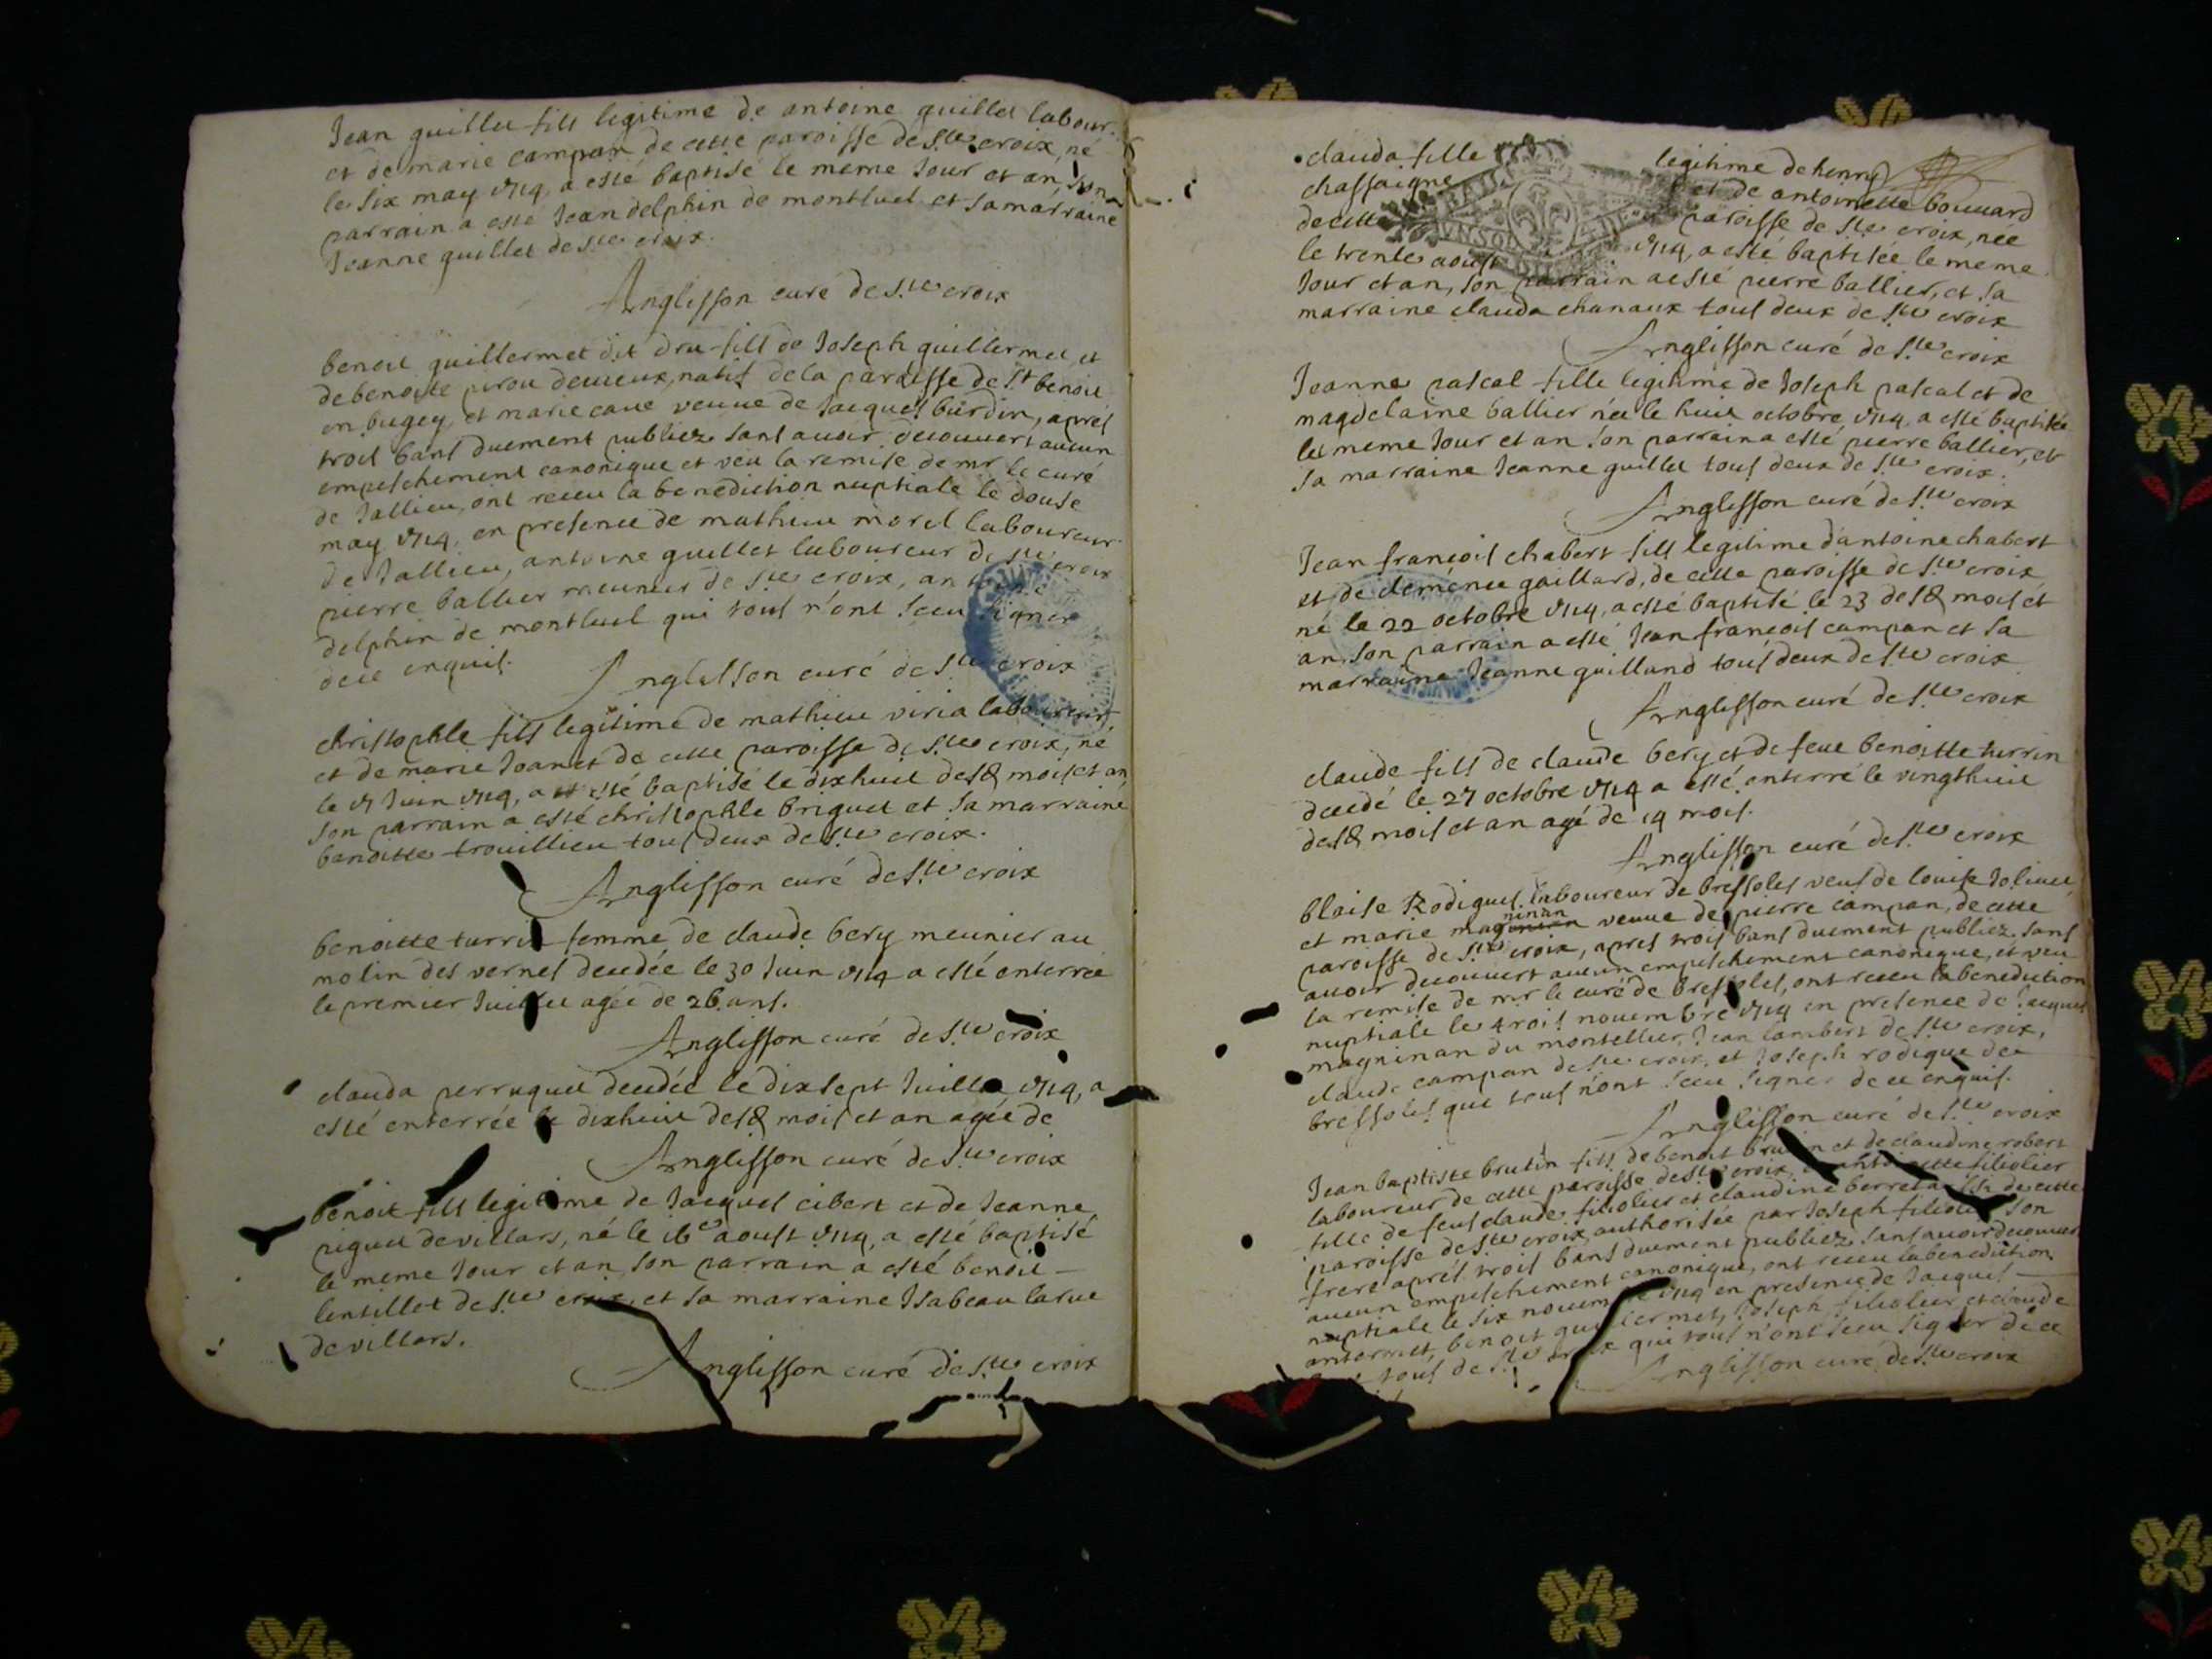 Jean guillet fils legitime de antoine guillet labour.
et de marie campan de cette paroisse de Ste croix, né
le six may 1714, a esté baptisé le meme Jour et an, son
parrain a esté Jean delphin de montluel et sa marraine
Jeanne guillet de Ste croix.
Anglisson curé de Ste croix
benoit guillermet dit dru fils de Joseph guillermet et
de benoite pirou demeux, natif de la paroisse de St benoit
en bugey, et marie cave veuve de Jacques burdin, aprés
trois bans duement publiez sans avoir decouvert aucun
empeschement canonique et veu la remise de mr le curé
de Jallieu, ont receu la benediction nuptiale le douse
may 1714, en presence de mathieu morel laboureur
de Jallieu, antoine guillet laboureur de Ste croix
pierre ballier meunier de Ste croix, antoine
delphin de montluel qui tous n'ont sceu signer
de ce enquis.
Anglisson curé de Ste croix
christophle fils legitime de mathieu viria laboureur
et de marie Joanet de cette paroisse de Ste croix, né
le 17 Juin 1714, a esté baptisé le dixhuit desd mois et an,
son parrain a esté christophle briquet et sa marraine
benoitte trouillieu tous deux de Ste croix.
Anglisson curé de Ste croix
benoitte turrin femme de claude bery meunier au
molin des vernes decedée le 30 Juin 1714 a esté enterrée
le premier Juillet agée de 26 ans.
Anglisson curé de Ste croix
clauda perruquet decedée le dixsept Juillet 1714, a
esté enterrée le dixhuit desd mois et an agée de
Anglisson curé de Ste croix
benoit fils legitime de Jacques cibert et de Jeanne
piguet de villars, né le 16e aoust 1714, a esté baptisé
le meme Jour et an, son parrain a esté benoit
lentillet de Ste croix, et sa marraine Isabeau larue
de villars.
Anglisson curé de Ste croix
clauda fille legitime de henry
chassaigne et de antoinette bouvard
de cette paroisse de Ste croix, née
le trente aoust 1714, a esté baptisée le meme
Jour et an, son parrain a esté pierre ballier, et sa
marraine clauda chanaux tous deux de Ste croix
Anglisson curé de Ste croix
Jeanne pascal fille legitime de Joseph pascal et de
magdelaine ballier née le huit octobre 1714, a esté baptisée
le meme Jour et an son parrain a esté pierre ballier, et
sa marraine Jeanne guillet tous deux de Ste croix.
Anglisson curé de Ste croix
Jean françois chabert fils legitime d'antoine chabert
et de clemence gaillard, de cette paroisse de Ste croix
né le 22 octobre 1714, a esté baptisé le 23 desd mois et
an, son parrain a esté Jean françois campan et sa
marraine Jeanne guilland tous deux de Ste croix
Anglisson curé de Ste croix
claude fils de claude bery et de feue benoitte turrin
decedé le 27 octobre 1714 a esté enterré le vingthuit
desd mois et an agé de 14 mois.
Anglisson curé de Ste croix
blaise Rodigues laboureur de bressoles veuf de louise Jolivet
et marie magninan veuve de pierre campan, de cette
paroisse de Ste croix, apres trois bans duement publiez sans
avoir decouvert aucun empeschement canonique, et veu
la remise de mr le curé de bressoles, ont receu la benediction
nuptiale le trois novembre 1714 en presence de Jacques
magninan du montellier, Jean lambert de Ste croix,
claude campan de Ste croix, et Joseph rodigue de
bressoles que tous n'ont sceu signer de ce enquis.
Anglisson curé de Ste croix
Jean baptiste brutin fils de benoit brutin et de claudine robert
laboureur de cette paroisse de Ste croix, et antoinette filiolier
fille de feus claude filiolier et claudine berret aussi de cette
paroisse de Ste croix, authorisée par Joseph filiolier son
frere aprés trois bans duement publiez sans avoir decouvert
aucun empeschement canonique, ont receu la benediction
nuptiale le six novembre 1714 en presence de Jacques
antermet, benoit guillermet, Joseph filiolier, et claude
tous de Ste croix qui tous n'ont sceu signer de ce
Anglisson curé de Ste croix